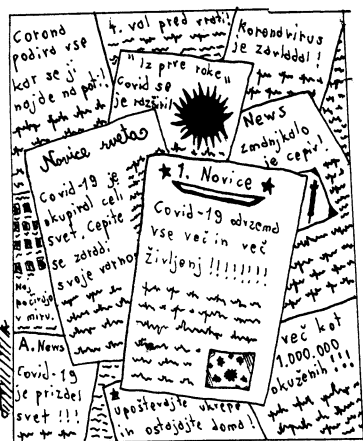 Corona
podira vse
kar se ji
najde na poti!
4. val pred vrati!
Koronavirus
je zavladal!
"Iz prve roke"
Covid se
je razširil
News
zmanjkalo
je cepiv!
Novice sveta
Covid-19 je
okupiral celi
svet. Cepite
se zaradi
svoje varnosti
1. Novice
Covid-19 odvzema
vse več in več
življenj !!!!!!!!
Naj
počivajo
v miru.
A. News
Covid-19
je prizdel
svet !!!
upoštevajte ukrepe
in ostajajte doma!
več kot
1.000.000
okuženih !!!